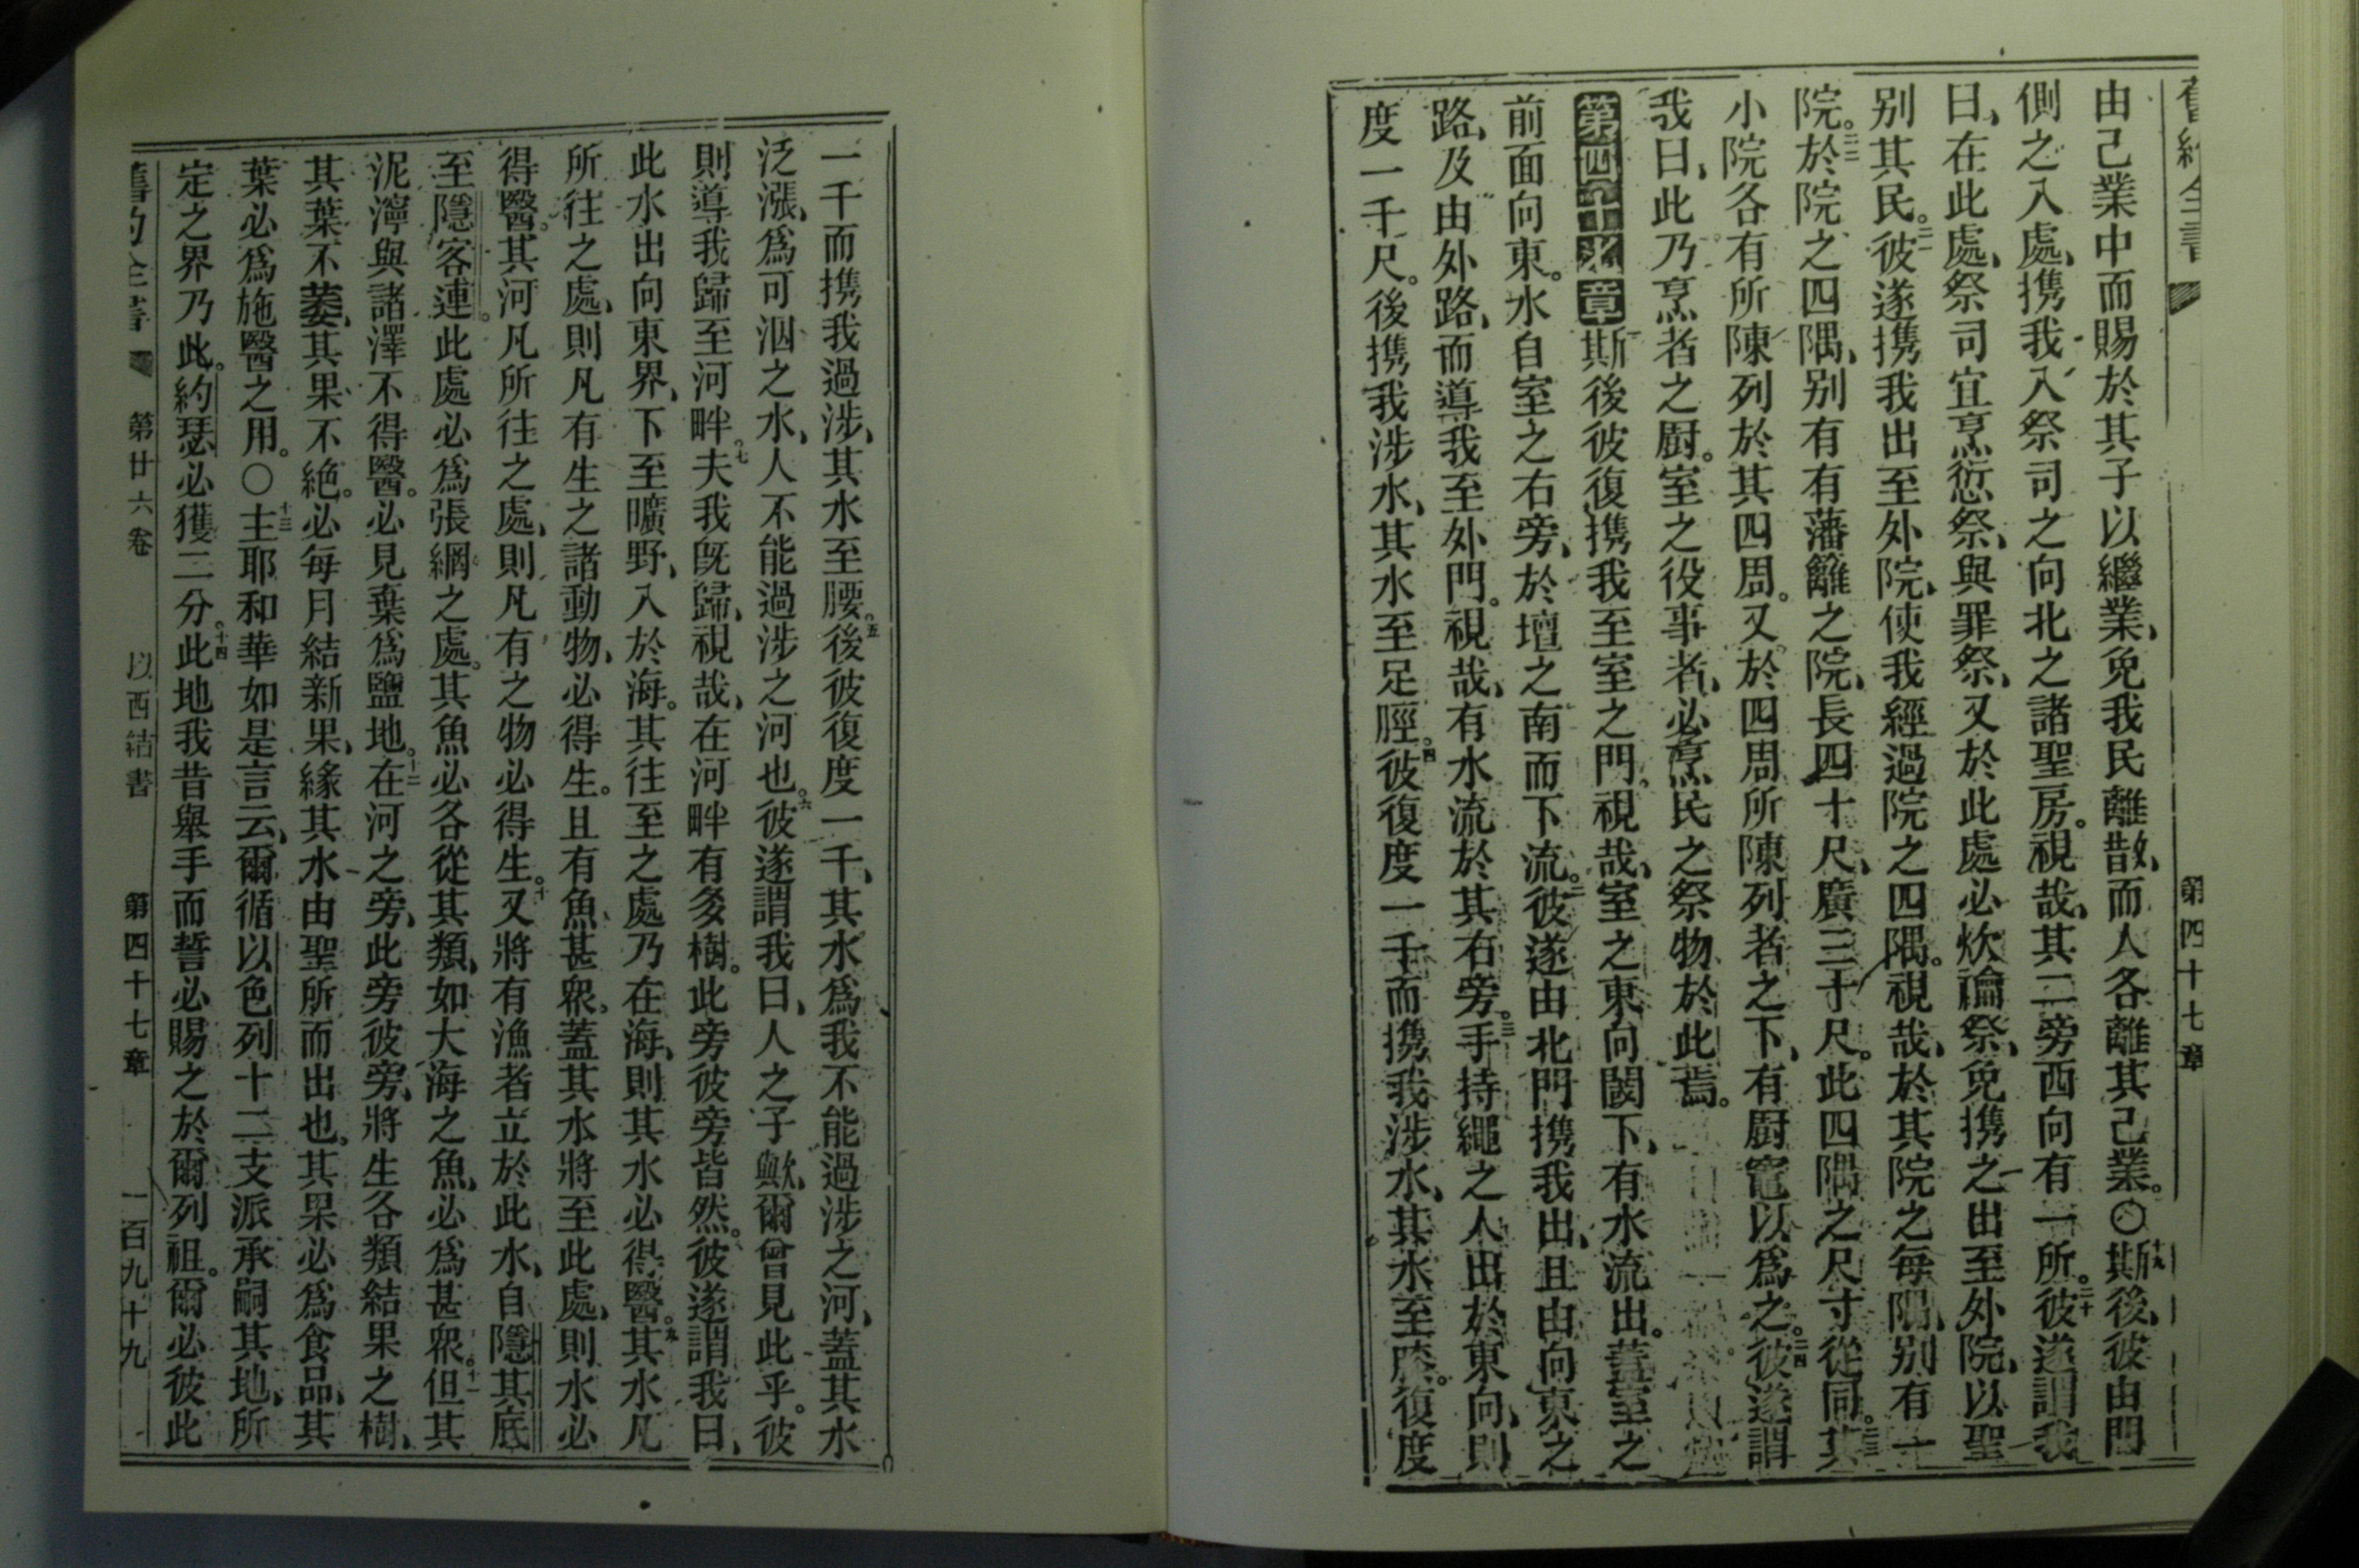 第四十七章
由己業中而賜於其子以繼業、免我民離散、而人各離其己業。〇十九斯後、彼由門
側之入處、携我入祭司之向北之諸聖房。視哉、其二旁西向有一所。二十彼遂謂我
曰、在此處、祭司宜烹愆祭、與罪祭、又於此處必炊𥛬祭、免携之出至外院、以聖
別其民。二一彼遂携我出至外院、使我經過院之四隅。視哉、於其院之每隅、別有一
院。二二於院之四隅、別有有藩籬之院、長四十尺、廣三十尺。此四隅之尺寸從同。二三其
小院各有所陳列於其四周。又於四周所陳列者之下、有厨竈以為之。二四彼遂謂
我曰、此乃烹者之厨。室之役事者、必烹民之祭物於此焉。
第四十七章斯後彼復携我至室之門。視哉、室之東向閾下、有水流出。蓋室之
前面向東。水自室之右旁、於壇之南而下流。二彼遂由北門携我出、且由向東之
路、及由外路、而導我至外門。視哉、有水流於其右旁。三手持繩之人出於東向、則
度一千尺。後携我涉水、其水至足脛。四彼復度一千而携我涉水、其水至膝。復度
一千而携我過涉、其水至腰。五後彼復度一千、其水為我不能過涉之河、蓋其水
泛漲、為可泅之水、人不能過涉之河也。六彼遂謂我曰、人之子歟、爾曾見此乎。彼
則導我歸至河畔。七夫我旣歸、視哉、在河畔有多樹。此旁彼旁皆然。彼遂謂我曰、
此水出向東界、下至曠野、入於海。其往至之處乃在海、則其水必得醫。九其水凡
所往之處、則凡有生之諸動物、必得生。且有魚甚衆。蓋其水將至此處、則水必
得醫。其河凡所往之處、則凡有之物必得生。十又將有漁者立於此水、自隱其底
至隱客連。此處必為張網之處。其魚必各從其類、如大海之魚、必為甚衆。十一但其
泥濘與諸澤不得醫。必見棄為鹽地。十二在河之旁、此旁彼旁、將生各類結果之樹、
其葉不萎、其果不絶。必每月結新果、緣其水由聖所而出也。其果必為食品、其
葉必為施醫之用。〇十三主耶和華如是言云、爾循以色列十二支派承嗣其地、所
定之界乃此。約瑟必獲二分。十四此地我昔舉手而誓必賜之於爾列祖。爾必彼此
舊約全書 第廿六卷 以西結書 第四十七章 一百九十九